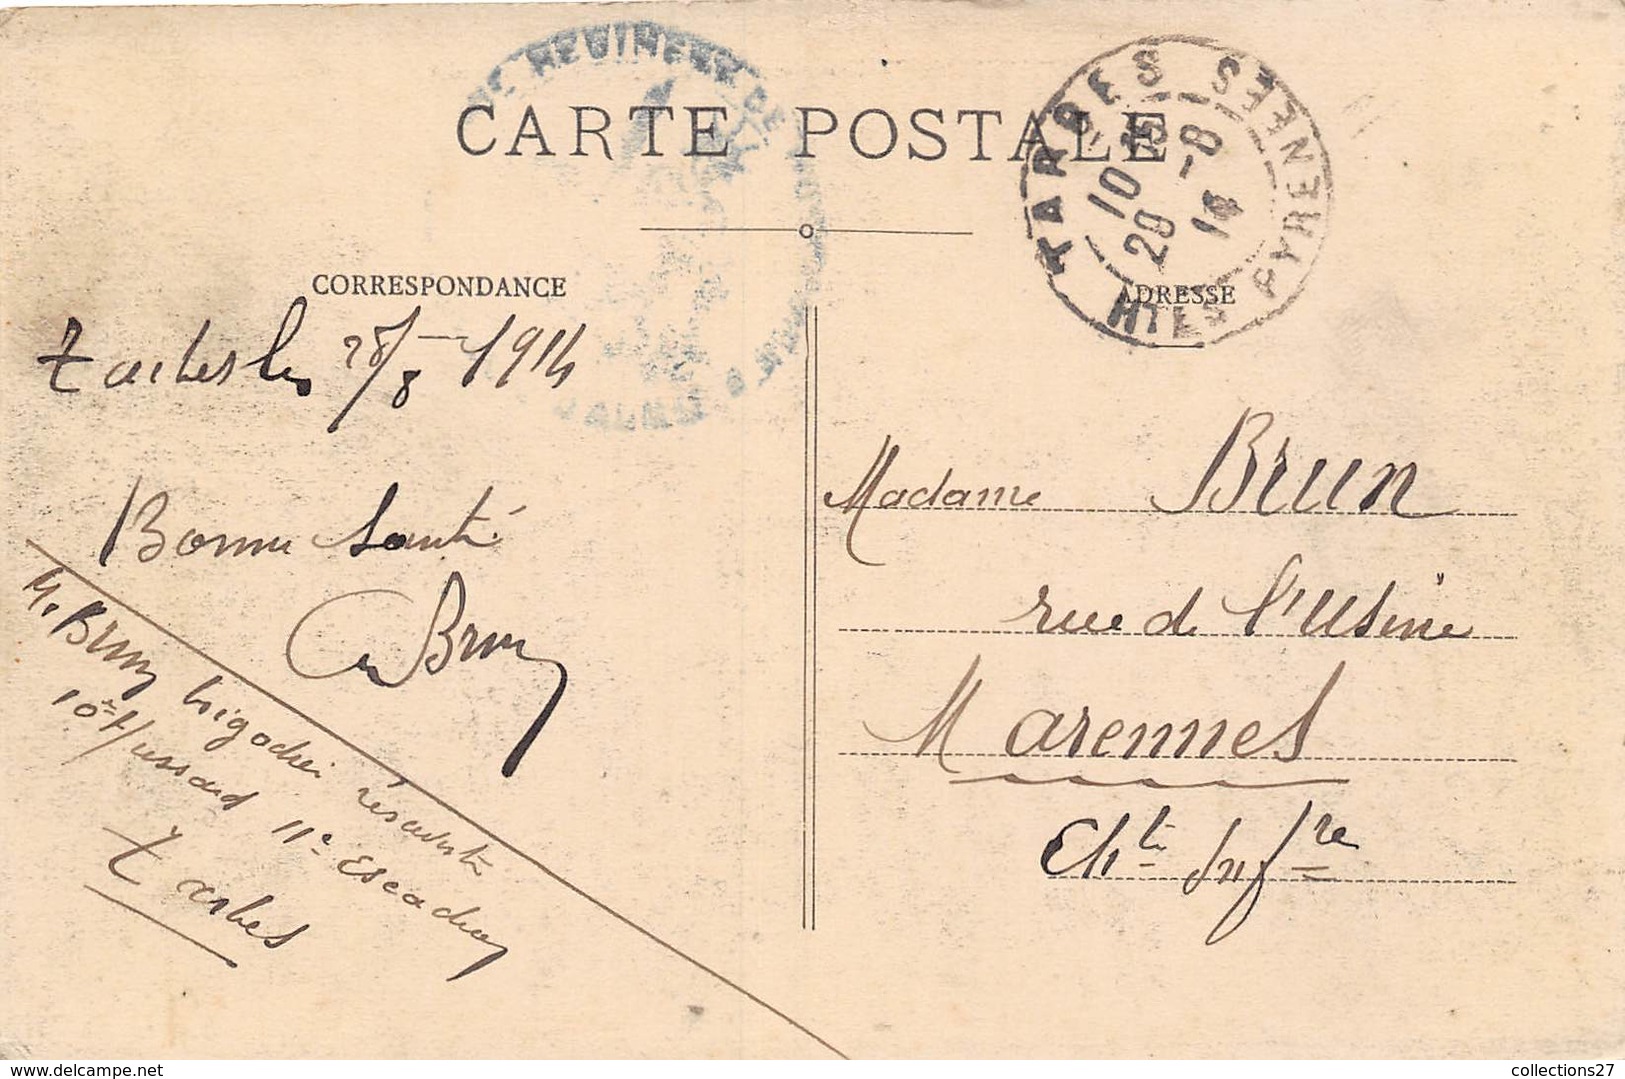 CARTE POSTALE
CORRESPONDANCE
ADRESSE
TARBES
HTES PYRENEES
10 15
20 -8
14
Tarbes le 28/8 1914
Bonne Santé
Brun
M. Brun brigadier réserviste
10e Hussard 11e Escadron
Tarbes
Madame Brun
rue de l'Usine
Marennes
Chte Infre
delcampe.net
collections27